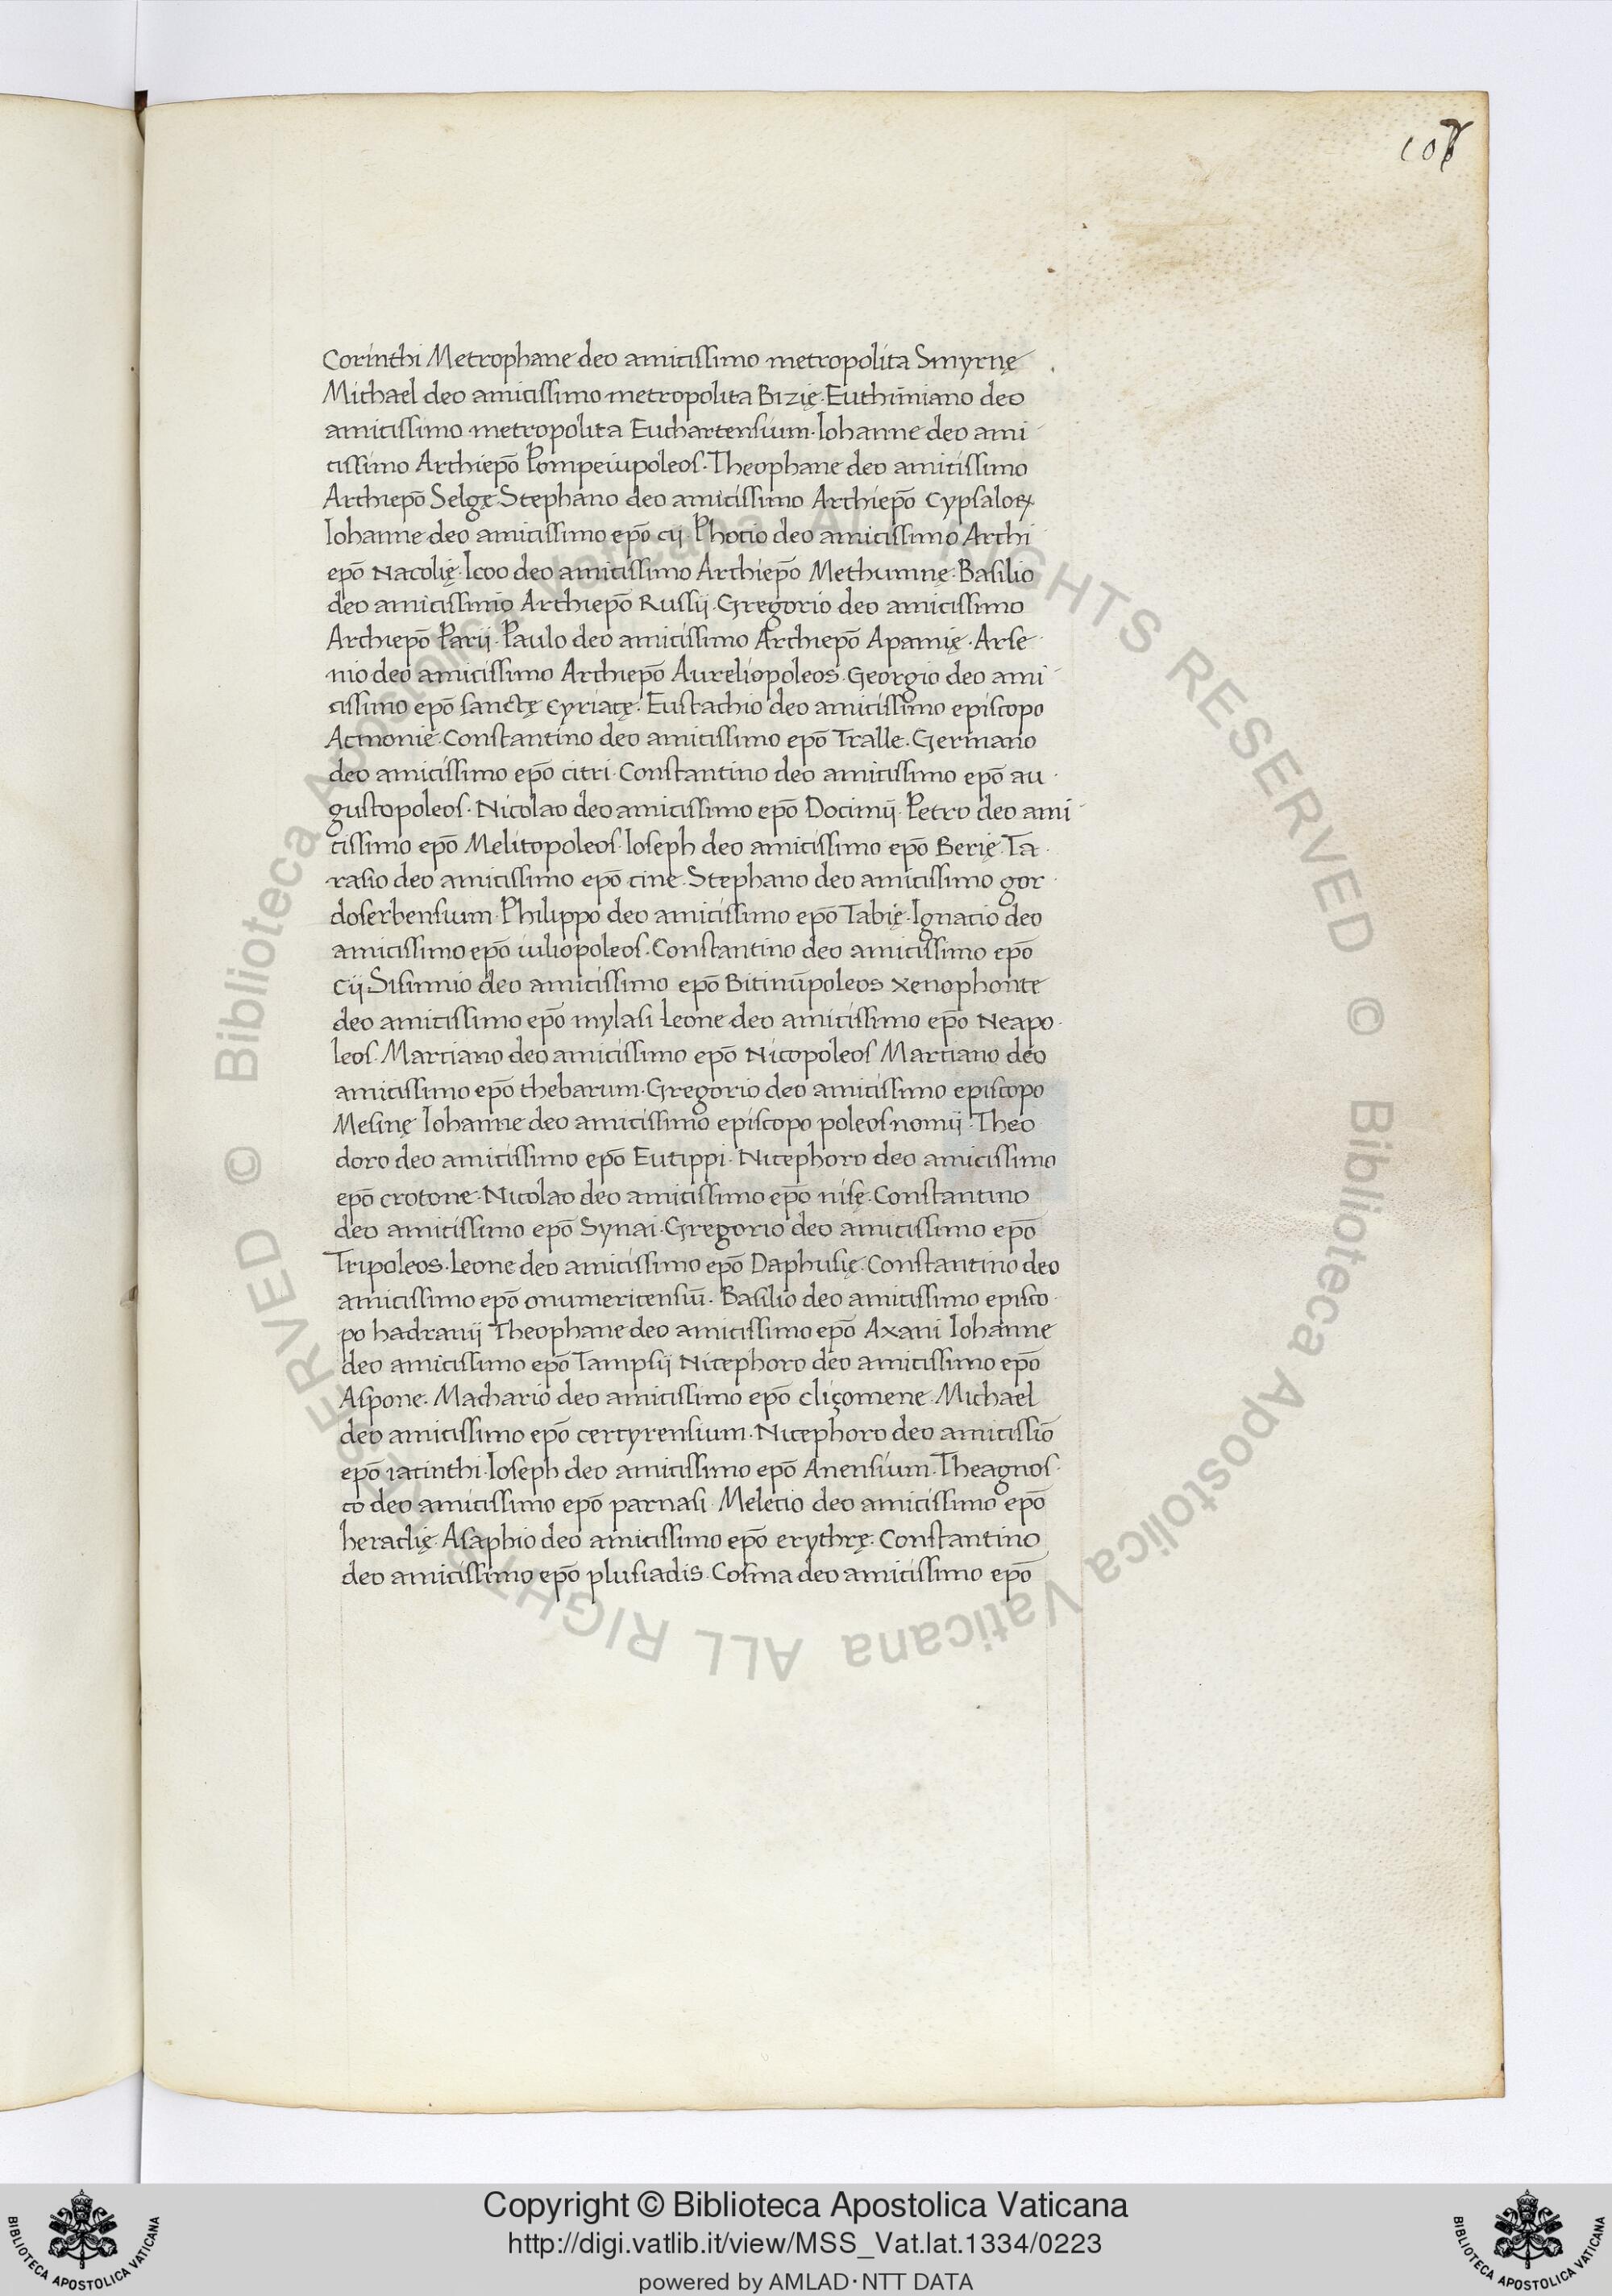 107
Corinthi Metrophane deo amicissimo metropolita Smyrnę
Michael deo amicissimo metropolita Bizię. Euthimiano deo
amicissimo metropolita Euchartensium. Iohanne deo ami
cissimo Archiepō Pompeiupoleos. Theophane deo amicissimo
Archiepō Selgę Stephano deo amicissimo Archiepō Cypsaloꝝ
Iohanne deo amicissimo epō cij. Photio deo amicissimo Archi
epō Nacolię. Icoo deo amicissimo Archiepō Methumnę. Basilio
deo amicissimo Archiepō Russij. Gregorio deo amicissimo
Archiepō Parij. Paulo deo amicissimo Archiepō Apamię. Arse
nio deo amicissimo Archiepō Aureliopoleos. Georgio deo ami
cissimo epō sanctę cyriacę. Eustachio deo amicissimo episcopo
Acmonię. Constantino deo amicissimo epō Tralle. Germano
deo amicissimo epō citri. Constantino deo amicissimo epō au
gustopoleos. Nicolao deo amicissimo epō Docimij. Petro deo ami
cissimo epō Melitopoleos. Ioseph deo amicissimo epō Berię. Ta
rasio deo amicissimo epō cine. Stephano deo amicissimo gor
doserbensium. Philippo deo amicissimo epō Tabię. Ignacio deo
amicissimo epō iuliopoleos. Constantino deo amicissimo epō
Cij Sisinnio deo amicissimo epō Bitinūpoleos xenophonte
deo amicissimo epō mylasi Leone deo amicissimo epō Neapo
leos. Marciano deo amicissimo epō Nicopoleos Marciano deo
amicissimo epō thebarum. Gregorio deo amicissimo episcopo
Mesinę Iohanne deo amicissimo episcopo poleos nomij. Theo
doro deo amicissimo epō Eutippi. Nicephoro deo amicissimo
epō crotone. Nicolao deo amicissimo epō nisę. Constantino
deo amicissimo epō Synai. Gregorio deo amicissimo epō
Tripoleos. Leone deo amicissimo epō Daphusię. Constantino deo
amicissimo epō onumericensiū. Basilio deo amicissimo episco
po hadranij Theophane deo amicissimo epō Axani Iohanne
deo amicissimo epō Tampsij Nicephoro deo amicissimo epō
Aspone. Machario deo amicissimo epō cliçomene. Michael
deo amicissimo epō certyrensium. Nicephoro deo amicissiō
epō iacinthi. Ioseph deo amicissimo epō Anensium. Theagnos
to deo amicissimo epō parnasi. Meletio deo amicissimo epō
heraclię. Asaphio deo amicissimo epō erythrę. Constantino
deo amicissimo epō plusiadis. Cosma deo amicissimo epō
© Biblioteca Apostolica Vaticana ALL RIGHTS RESERVED
© Biblioteca Apostolica Vaticana ALL RIGHTS RESERVED
Copyright © Biblioteca Apostolica Vaticana
http://digi.vatlib.it/view/MSS_Vat.lat.1334/0223
powered by AMLAD·NTT DATA
BIBLIOTECA APOSTOLICA VATICANA
BIBLIOTECA APOSTOLICA VATICANA